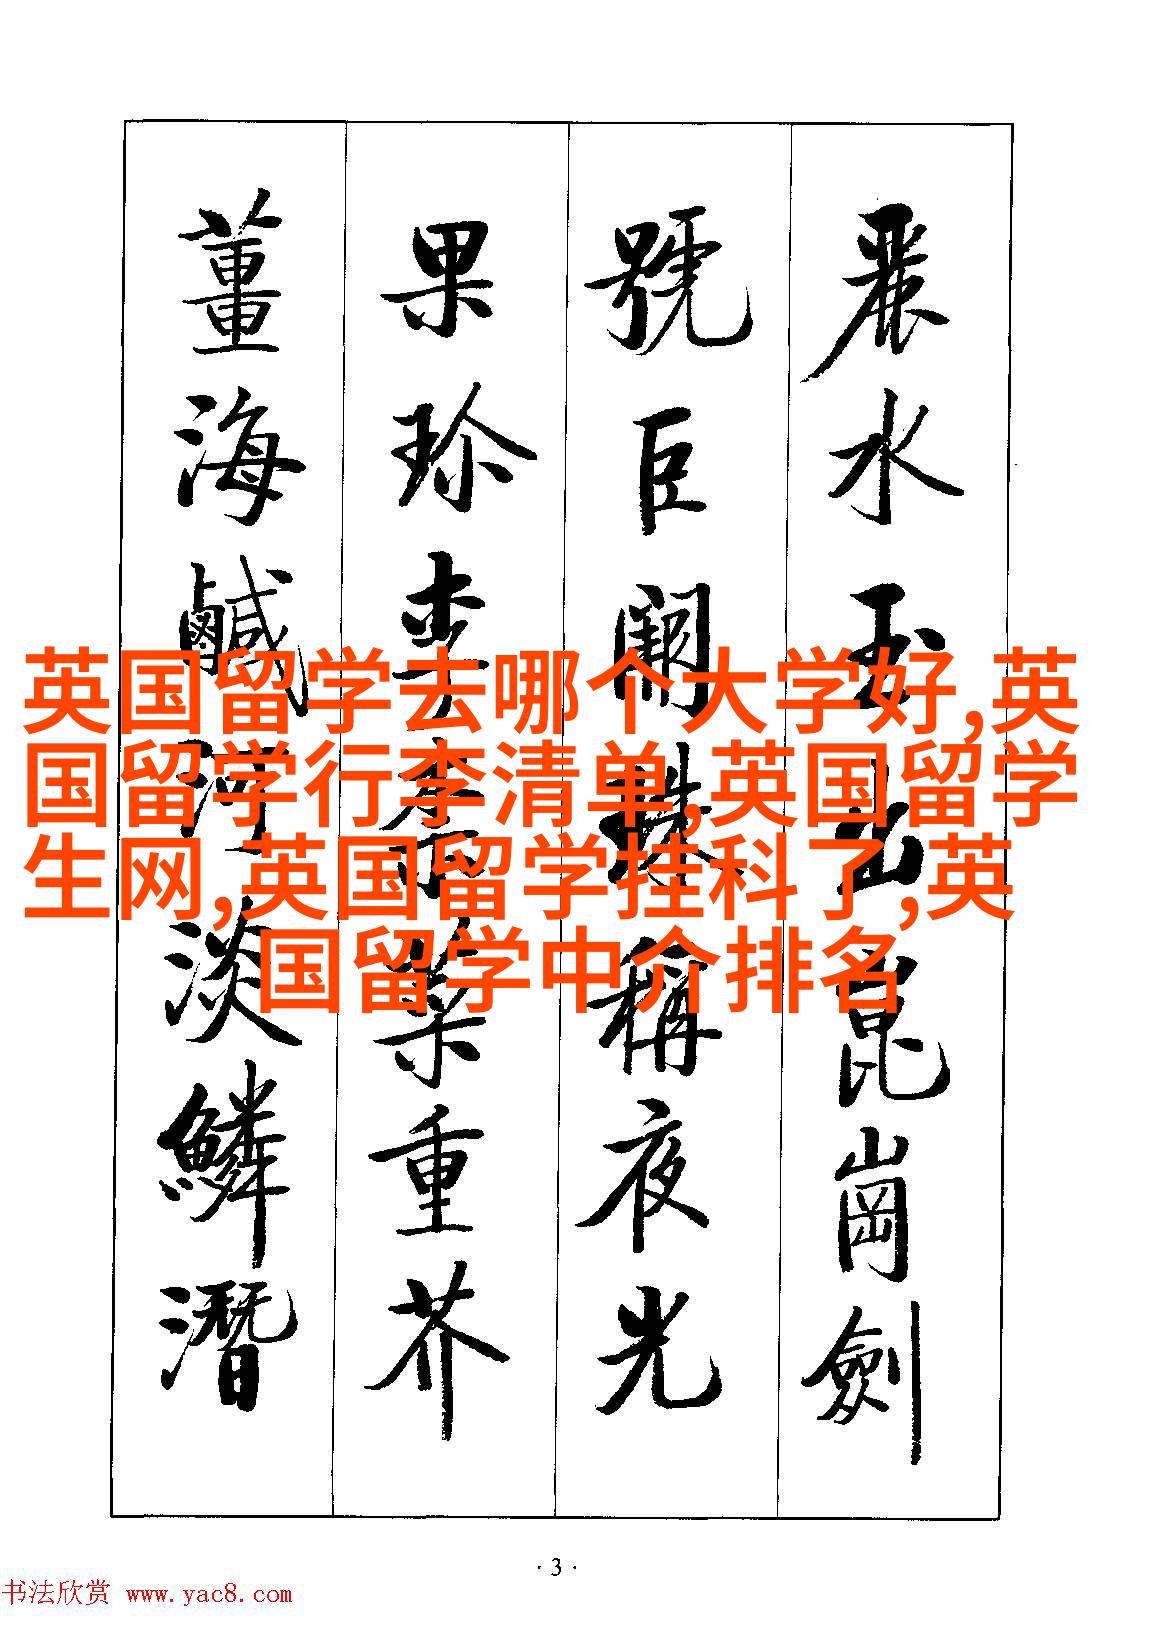 麗水玉出崑崗劍
號巨闕珠稱夜光
果珍李柰菜重芥
薑海鹹河淡鱗潛
英国留学去哪个大学好,英
国留学行李清单,英国留学
生网,英国留学挂科了,英
国留学中介排名
·3·
书法欣赏 www.yac8.com